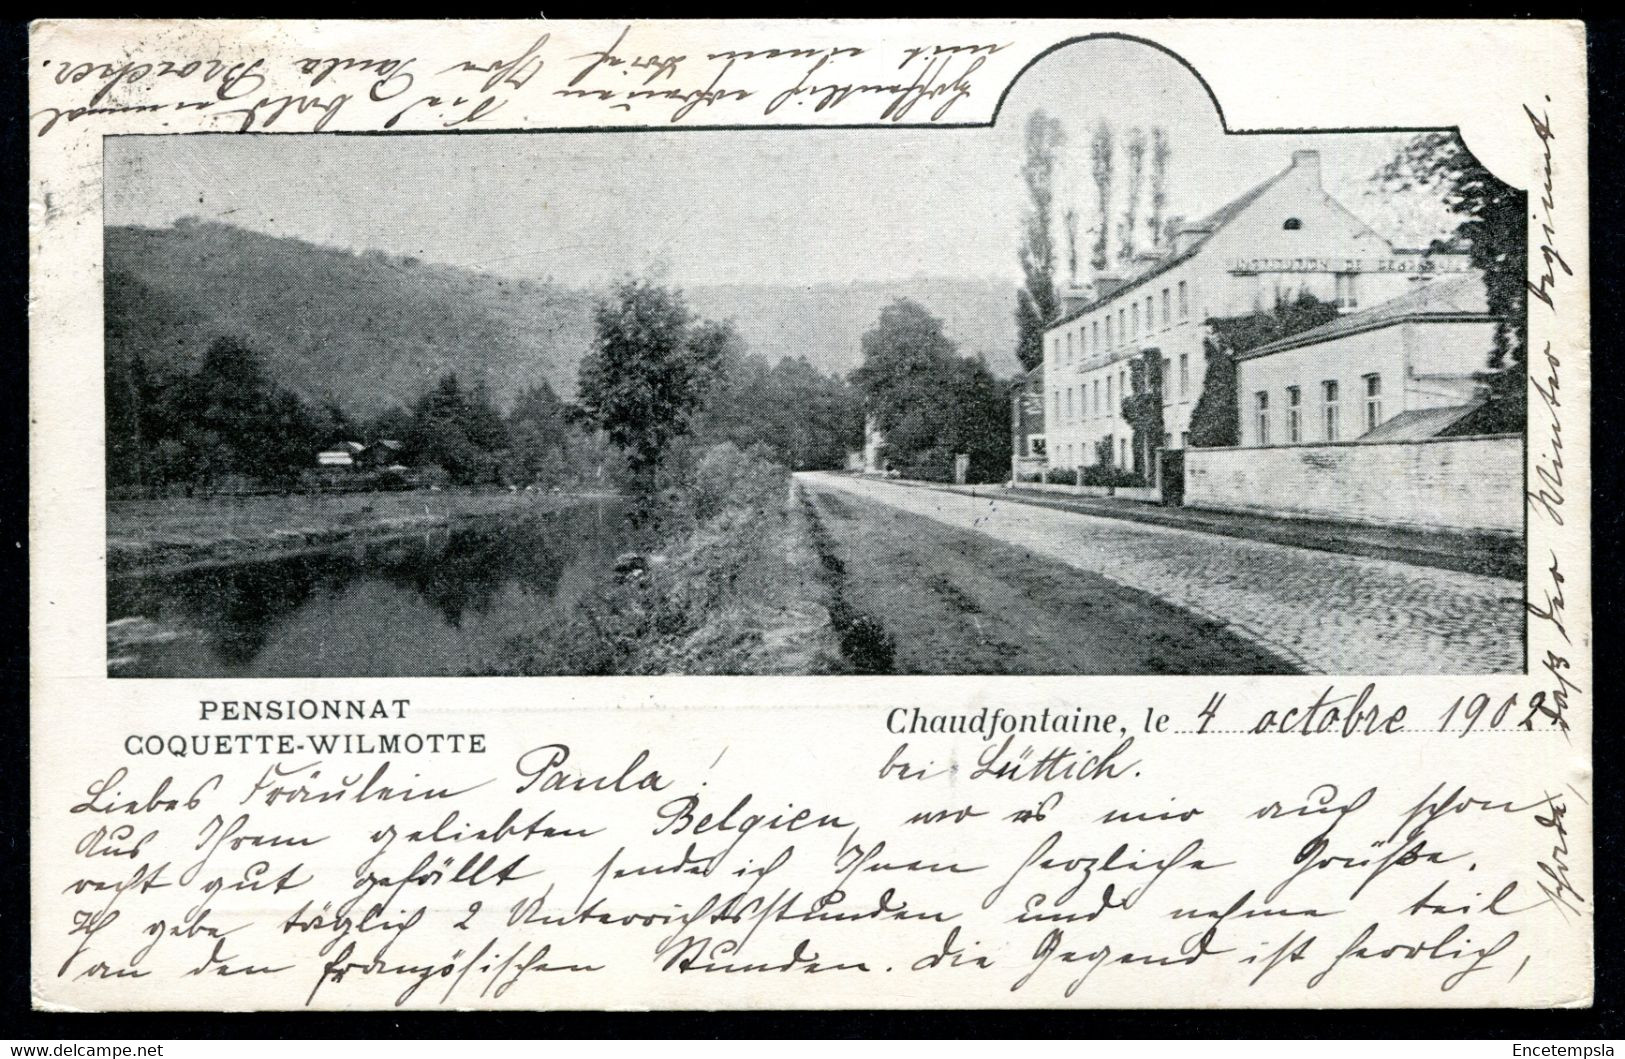 INSTITUTION DE DEMOISELLES
PENSIONNAT
COQUETTE-WILMOTTE
Chaudfontaine, le 4 octobre 1902
bei Lüttich.
Liebes Fräulein Paula!
Aus Ihrem geliebten Belgien, wo es mir auch schon
recht gut gefällt, sende ich Ihnen herzliche Grüße.
Ich gebe täglich 2 Unterrichtsstunden und nehme teil
an den französischen Stunden. Die Gegend ist herrlich,
schade, daß der Winter beginnt.
Hoffentlich erfreuen Sie bald einmal
mit einem Brief Ihre Paula